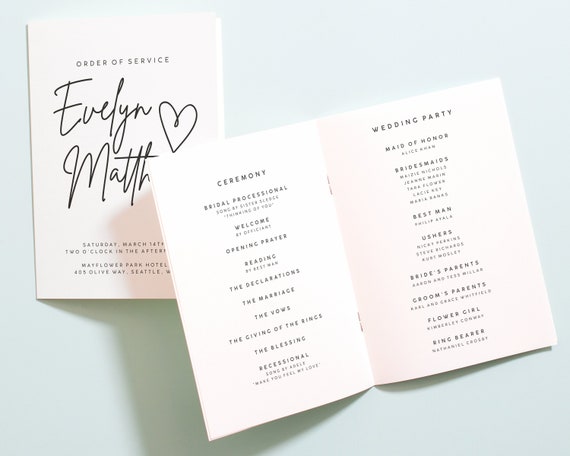 ORDER OF SERVICE
Evelyn
Matth
SATURDAY, MARCH 14TH
TWO O'CLOCK IN THE AFTERN
MAYFLOWER PARK HOTEL
405 OLIVE WAY, SEATTLE, W
CEREMONY
BRIDAL PROCESSIONAL
SONG BY SISTER SLEDGE
"THINKING OF YOU"
WELCOME
BY OFFICIANT
OPENING PRAYER
READING
BY BEST MAN
THE DECLARATIONS
THE MARRIAGE
THE VOWS
THE GIVING OF THE RINGS
THE BLESSING
RECESSIONAL
SONG BY ADELE
"MAKE YOU FEEL MY LOVE"
WEDDING PARTY
MAID OF HONOR
ALICE KHAN
BRIDESMAIDS
MAIZIE NICHOLS
JEANNE MARIN
TARA FLOWER
LACIE KEY
MARIA BANKS
BEST MAN
PHILIP AYALA
USHERS
NICKY PERKINS
STEVE RICHARDS
KURT MOSLEY
BRIDE'S PARENTS
AARON AND TESS MILLAR
GROOM'S PARENTS
KARL AND GRACE WHITFIELD
FLOWER GIRL
KIMBERLEY CONWAY
RING BEARER
NATHANIEL CROSBY